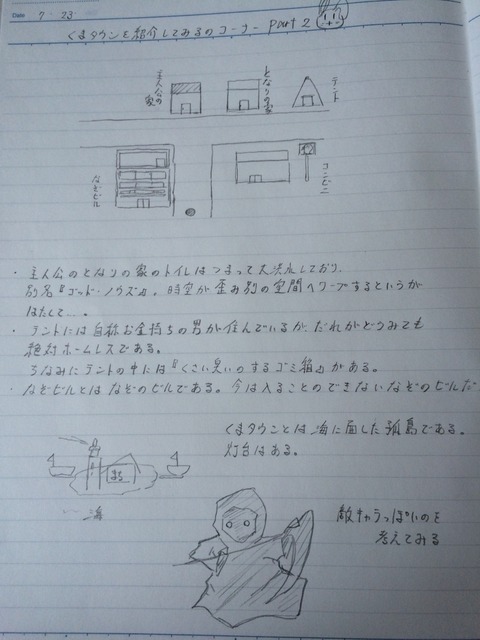 Date 7・23・
くまタウンを紹介してみるのコーナー Part 2
主人公の家
となりの家
テント
なぞビル
コンビニ
・主人公のとなりの家のトイレはつまって大洪水しており、
別名『ゴッド・ノウズ』。時空が歪み別の空間へワープするというが
はたして…。
・テントには自称お金持ちの男が住んでいるが、だれがどうみても
絶対ホームレスである。
ちなみにテントの中には『くさい臭いのするゴミ箱』がある。
・なぞビルとはなぞのビルである。今は入ることのできないなぞのビルだ
くまタウンとは海に面した孤島である。
灯台はある。
まち
海
敵キャラっぽいのを
考えてみる